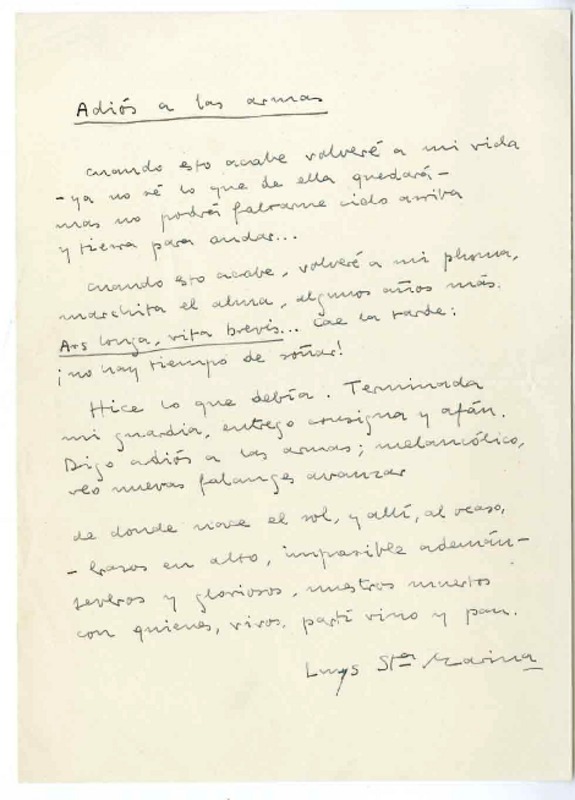 Adiós a las armas
Cuando esto acabe volveré a mi vida
- ya no sé lo que de ella quedará -
mas no podrá faltarme cielo arriba
y tierra para andar...
Cuando esto acabe, volveré a mi pluma,
marchita el alma, algunos años más.
Ars longa, vita brevis... Cae la tarde:
¡no hay tiempo de soñar!
Hice lo que debía. Terminada
mi guardia, entrego consigna y afán.
Digo adiós a las armas; melancólico,
veo nuevas falanges avanzar
de donde nace el sol, y allí, al ocaso,
- brazos en alto, impasible ademán -
severos y gloriosos, nuestros muertos
con quienes, vivos, partí vino y pan.
Luys Sta Marina